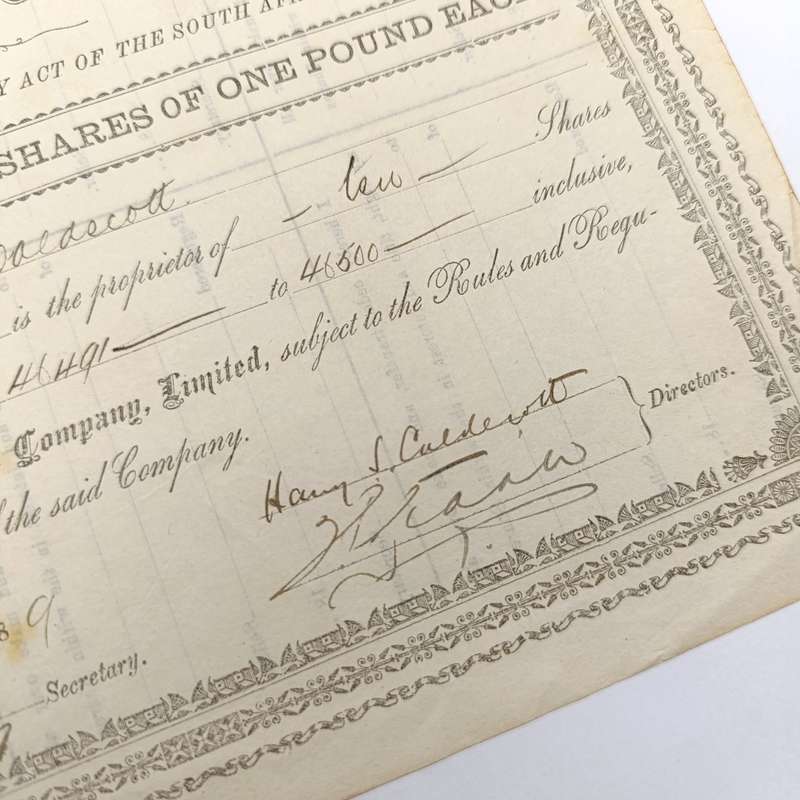 Y ACT OF THE SOUTH AFR
SHARES OF ONE POUND EACH
Caldecott
is the proprietor of — ten — Shares
46491 — to 46500 — inclusive,
Company, Limited, subject to the Rules and Regu-
the said Company.
Harry S. Caldecott
Directors.
9
Secretary.